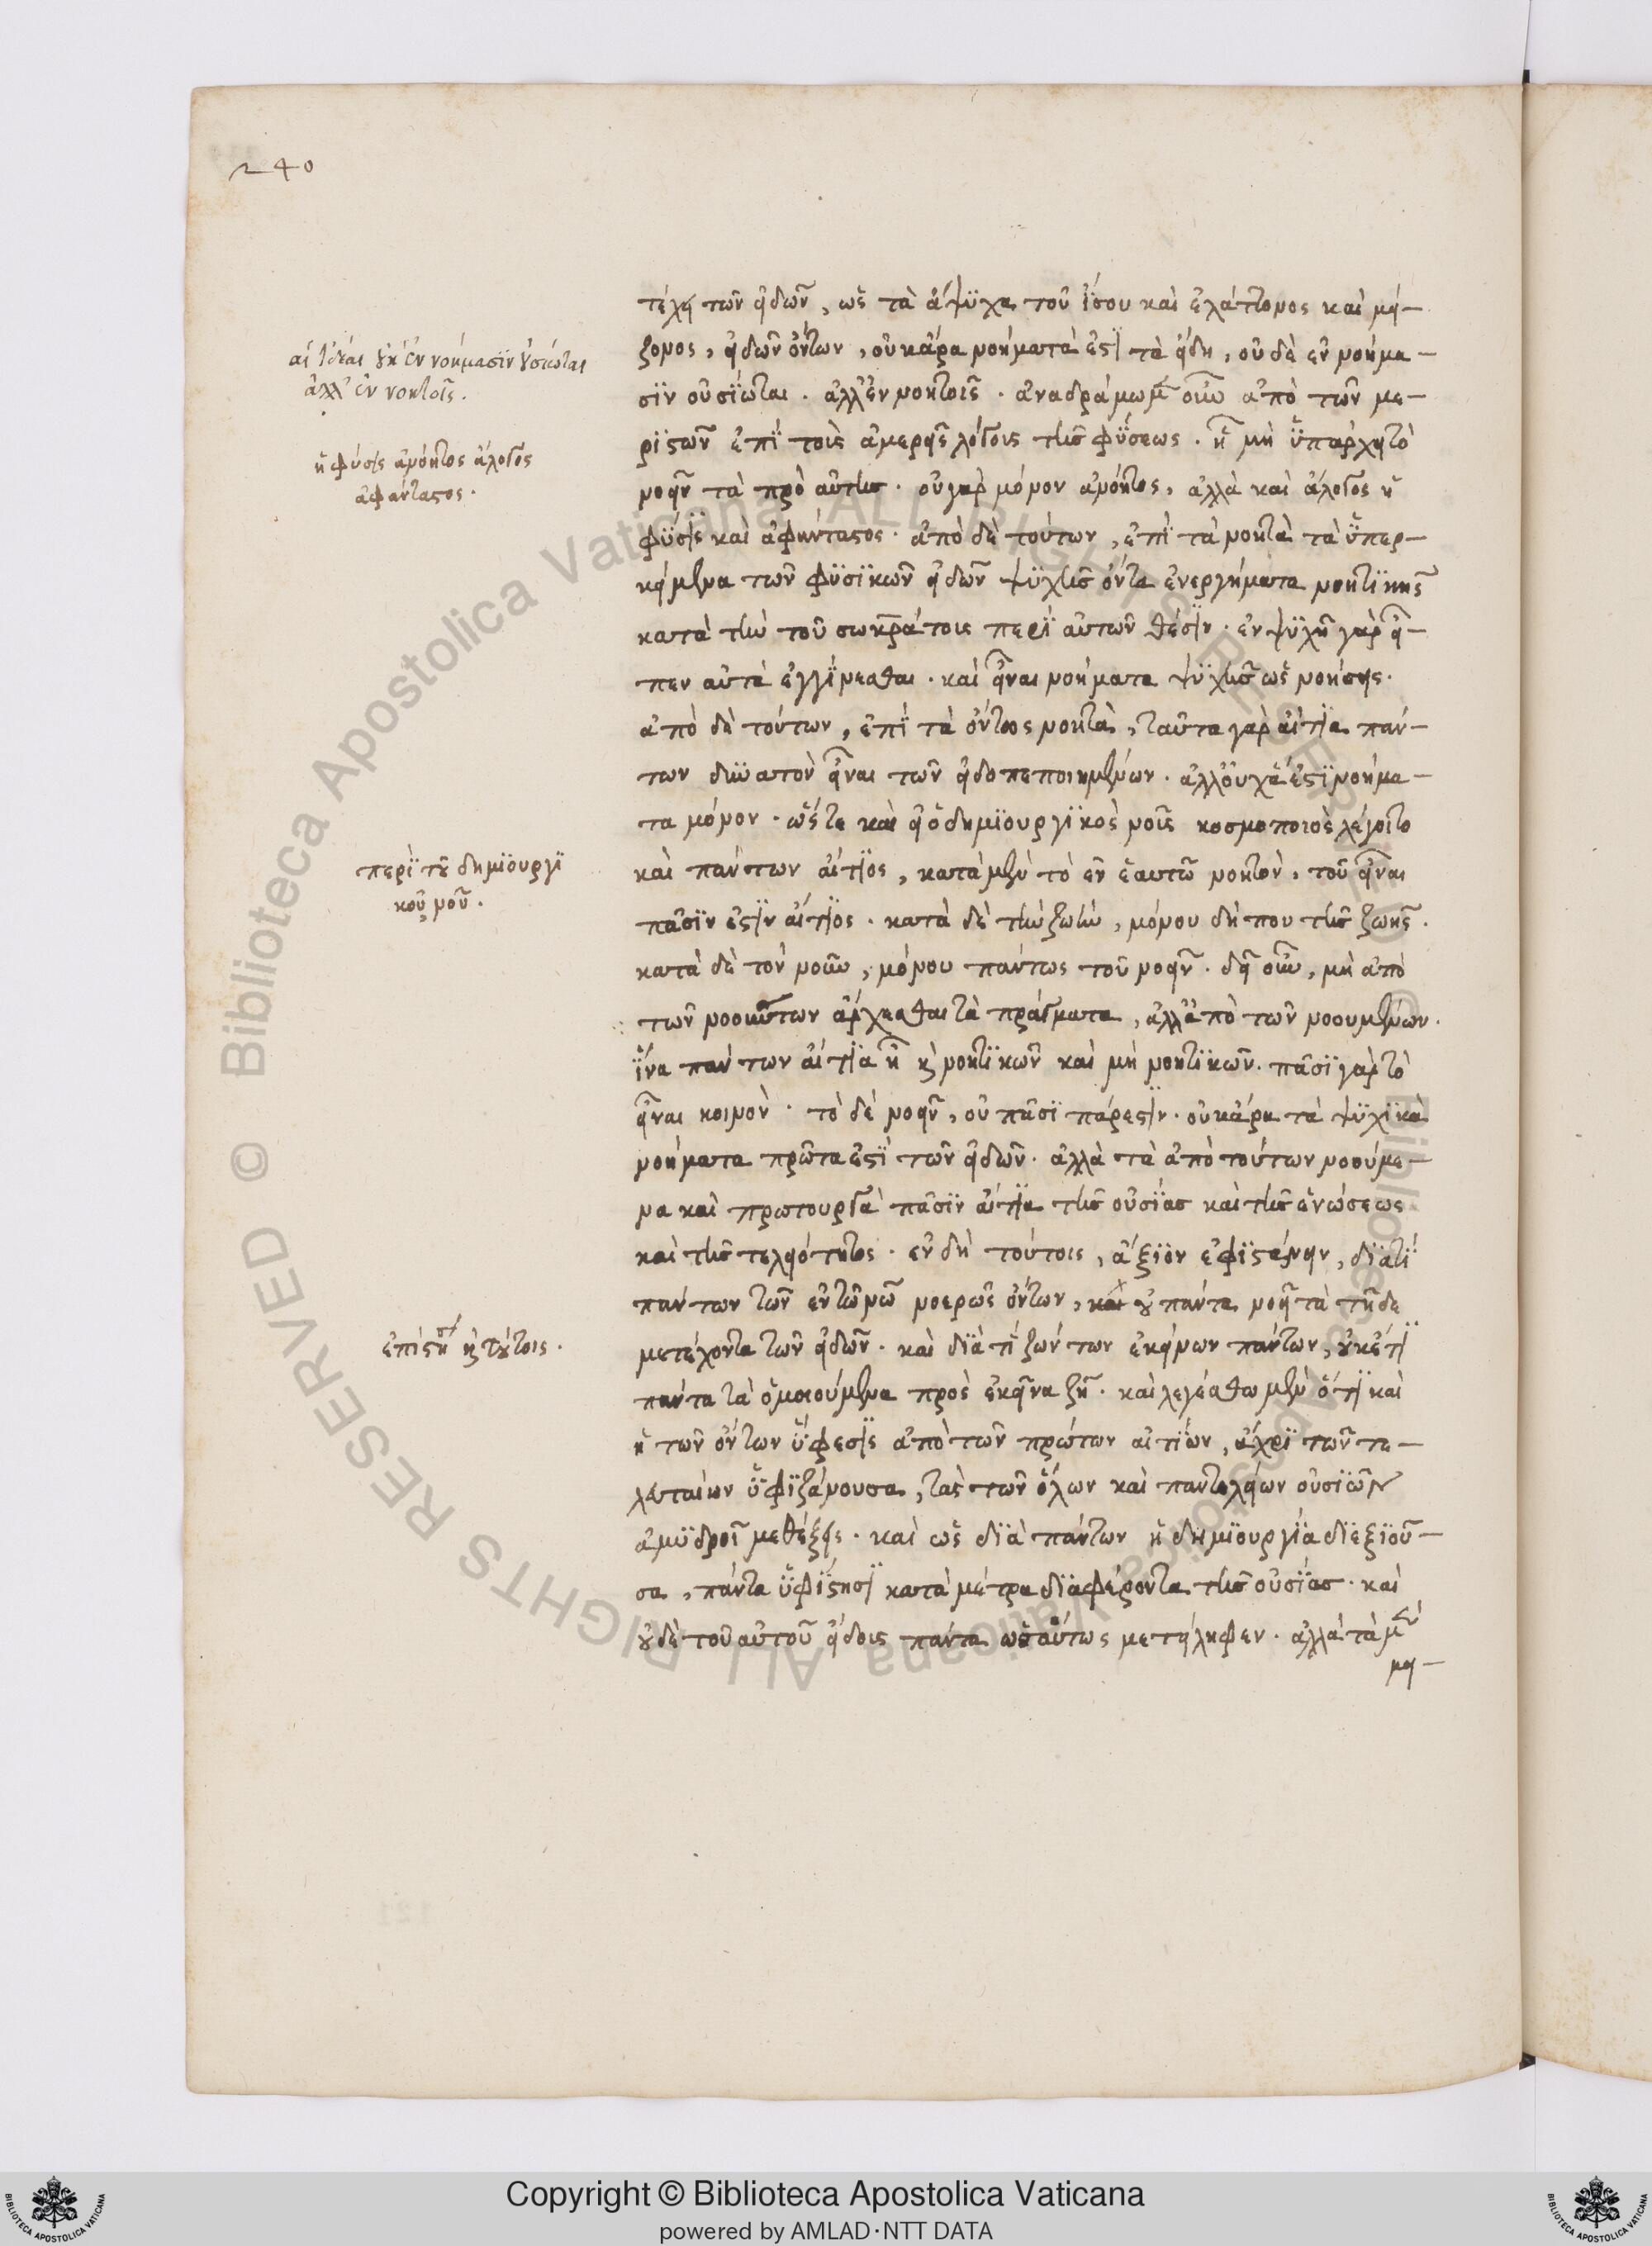 240
τέχει τῶν εἰδῶν, ὡς τὰ ἄψυχα τοῦ ἴσου καὶ ἐλάττονος καὶ μεί-
ζονος, εἰδῶν ὄντων, οὐκ ἄρα νοήματά ἐστι τὰ εἴδη, οὐδὲ ἐν νοήμα-
σιν οὐσίωται. ἀλλ' ἐν νοητοῖς. ἀναδράμωμεν οὖν ἀπὸ τῶν με-
ριστῶν ἐπὶ τοὺς ἀμερεῖς λόγους τῆς φύσεως. ᾗ μὴ ὑπάρχει τὸ
νοεῖν τὰ πρὸ αὐτῆς. οὐ γὰρ μόνον ἀνόητος, ἀλλὰ καὶ ἄλογος ἡ
φύσις καὶ ἀφάνταστος. ἀπὸ δὲ τούτων, ἐπὶ τὰ νοητὰ τὰ ὑπερ-
κείμενα τῶν φυσικῶν εἰδῶν ψυχῆς ὄντα ἐνεργήματα νοητικῆς
κατὰ τὴν τοῦ σωκράτους περὶ αὐτῶν θέσιν. ἐν ψυχῇ γὰρ εἶ-
πεν αὐτὰ ἐγγίνεσθαι. καὶ εἶναι νοήματα ψυχῆς ὡς νοήσεις.
ἀπὸ δὲ τούτων, ἐπὶ τὰ ὄντως νοητὰ, ταῦτα γὰρ αἴτια πάν-
των δυνατὸν εἶναι τῶν εἰδοπεποιημένων. ἀλλ' οὐχ ἅ ἐστι νοήμα-
τα μόνον. ὥστε καὶ εἰ ὁ δημιουργικὸς νοῦς κοσμοποιὸς λέγοιτο
καὶ πάντων αἴτιος, κατὰ μὲν τὸ ἐν ἑαυτῷ νοητὸν, τοῦ εἶναι
πᾶσιν ἐστὶν αἴτιος. κατὰ δὲ τὴν ζωὴν, μόνου δήπου τῆς ζωῆς.
κατὰ δὲ τὸν νοῦν, μόνου πάντως τοῦ νοεῖν. δεῖ οὖν, μὴ ἀπὸ
τῶν νοούντων ἄρχεσθαι τὰ πράγματα, ἀλλ' ἀπὸ τῶν νοουμένων.
ἵνα πάντων αἴτια ᾖ καὶ νοητικῶν καὶ μὴ νοητικῶν. πᾶσι γὰρ τὸ
εἶναι κοινὸν. τὸ δὲ νοεῖν, οὐ πᾶσι πάρεστιν. οὐκ ἄρα τὰ ψυχικὰ
νοήματα πρῶτα ἐστὶ τῶν εἰδῶν. ἀλλὰ τὰ ἀπὸ τούτων νοούμε-
να καὶ πρωτουργὰ πᾶσιν αἴτια τῆς οὐσίας καὶ τῆς ἑνώσεως
καὶ τῆς τελειότητος. ἐν δὴ τούτοις, ἄξιον ἐφιστάνειν, διατί
πάντων τῶν ἐν τῷ νῷ νοερῶς ὄντων, καὶ οὐ πάντα νοεῖ τὰ τῇδε
μετέχοντα τῶν εἰδῶν. καὶ διὰ τί ζώντων ἐκείνων πάντων, οὐκέτι
πάντα τὰ ὁμοιούμενα πρὸς ἐκεῖνα ζῇ. καὶ λεγέσθω μὲν ὅτι καὶ
ἡ τῶν ὄντων ὕφεσις ἀπὸ τῶν πρώτων αἰτίων, ἄχρι τῶν τε-
λευταίων ὑφιζάνουσα, τὰς τῶν ὅλων καὶ παντελείων οὐσιῶν
ἀμυδροῖ μεθέξεις. καὶ ὡς διὰ πάντων ἡ δημιουργία διεξιοῦ-
σα, πάντα ὑφίστησι κατὰ μέτρα διαφέροντα τῆς οὐσίας. καὶ
οὐδὲ τοῦ αὐτοῦ εἴδους πάντα ὡσαύτως μετείληφεν. ἀλλὰ τὰ μὲν
μει-
αἱ ἰδέαι οὐκ ἐν νοήμασιν οὐσίωται
ἀλλ' ἐν νοητοῖς.
ἡ φύσις ἀνόητος ἄλογος
ἀφάνταστος.
περὶ τοῦ δημιουργι
κοῦ νοῦ.
ἐπίστησον καὶ τούτοις.
Copyright © Biblioteca Apostolica Vaticana
powered by AMLAD·NTT DATA
© Biblioteca Apostolica Vaticana ALL RIGHTS RESERVED